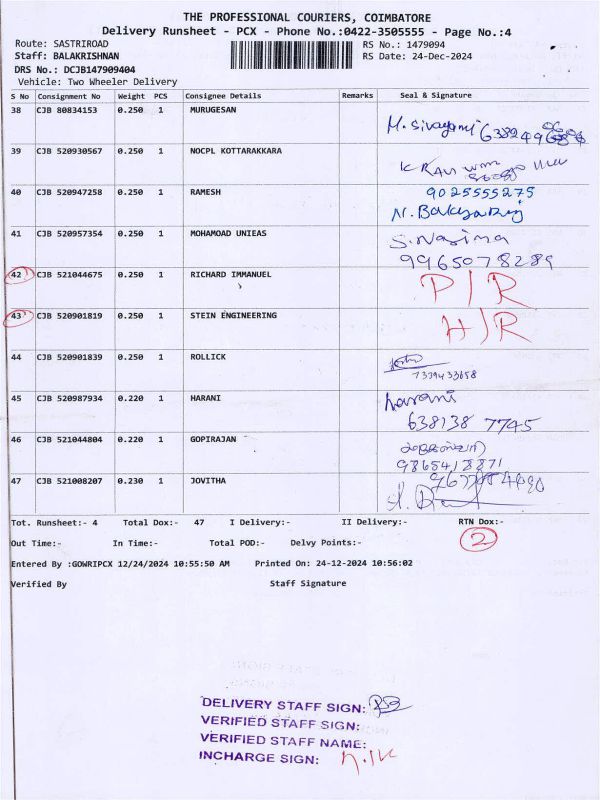 THE PROFESSIONAL COURIERS, COIMBATORE
Delivery Runsheet - PCX - Phone No.:0422-3505555 - Page No.:4
Route: SASTRIROAD RS No.: 1479094
Staff: BALAKRISHNAN RS Date: 24-Dec-2024
DRS No.: DCJB147909404
Vehicle: Two Wheeler Delivery
S No Consignment No Weight PCS Consignee Details Remarks Seal & Signature
38 CJB 80834153 0.250 1 MURUGESAN
M. Sivagami
39 CJB 520930567 0.250 1 NOCPL KOTTARAKKARA
40 CJB 520947258 0.250 1 RAMESH 9025555275
41 CJB 520957354 0.250 1 MOHAMOAD UNIEAS
9965078289
42 CJB 521044675 0.250 1 RICHARD IMMANUEL P/R
43 CJB 520901819 0.250 1 STEIN ENGINEERING H/R
44 CJB 520901839 0.250 1 ROLLICK
7339433658
45 CJB 520987934 0.220 1 HARANI harani
638138 7745
46 CJB 521044804 0.220 1 GOPIRAJAN
47 CJB 521008207 0.230 1 JOVITHA
Tot. Runsheet:- 4 Total Dox:- 47 I Delivery:- II Delivery:- RTN Dox:-
2
Out Time:- In Time:- Total POD:- Delvy Points:-
Entered By :GOWRIPCX 12/24/2024 10:55:50 AM Printed On: 24-12-2024 10:56:02
Verified By Staff Signature
DELIVERY STAFF SIGN:
VERIFIED STAFF SIGN:
VERIFIED STAFF NAME:
INCHARGE SIGN: